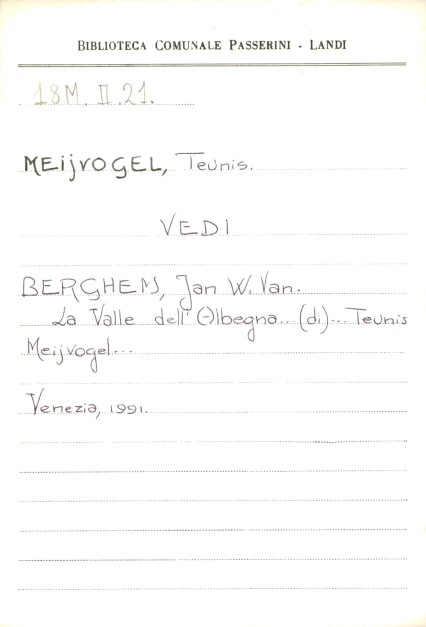 BIBLIOTECA COMUNALE PASSERINI - LANDI
18M. II. 21.
MEijVOGEL, Teunis.
VEDI
BERGHEM, Jan W. Van.
La Valle dell'Olbegna...(di)... Teunis
Meijvogel...
Venezia, 1991.